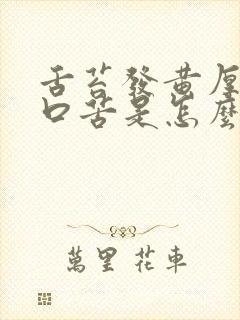 舌苔發黃厚
口苦是怎麼
萬里 花車